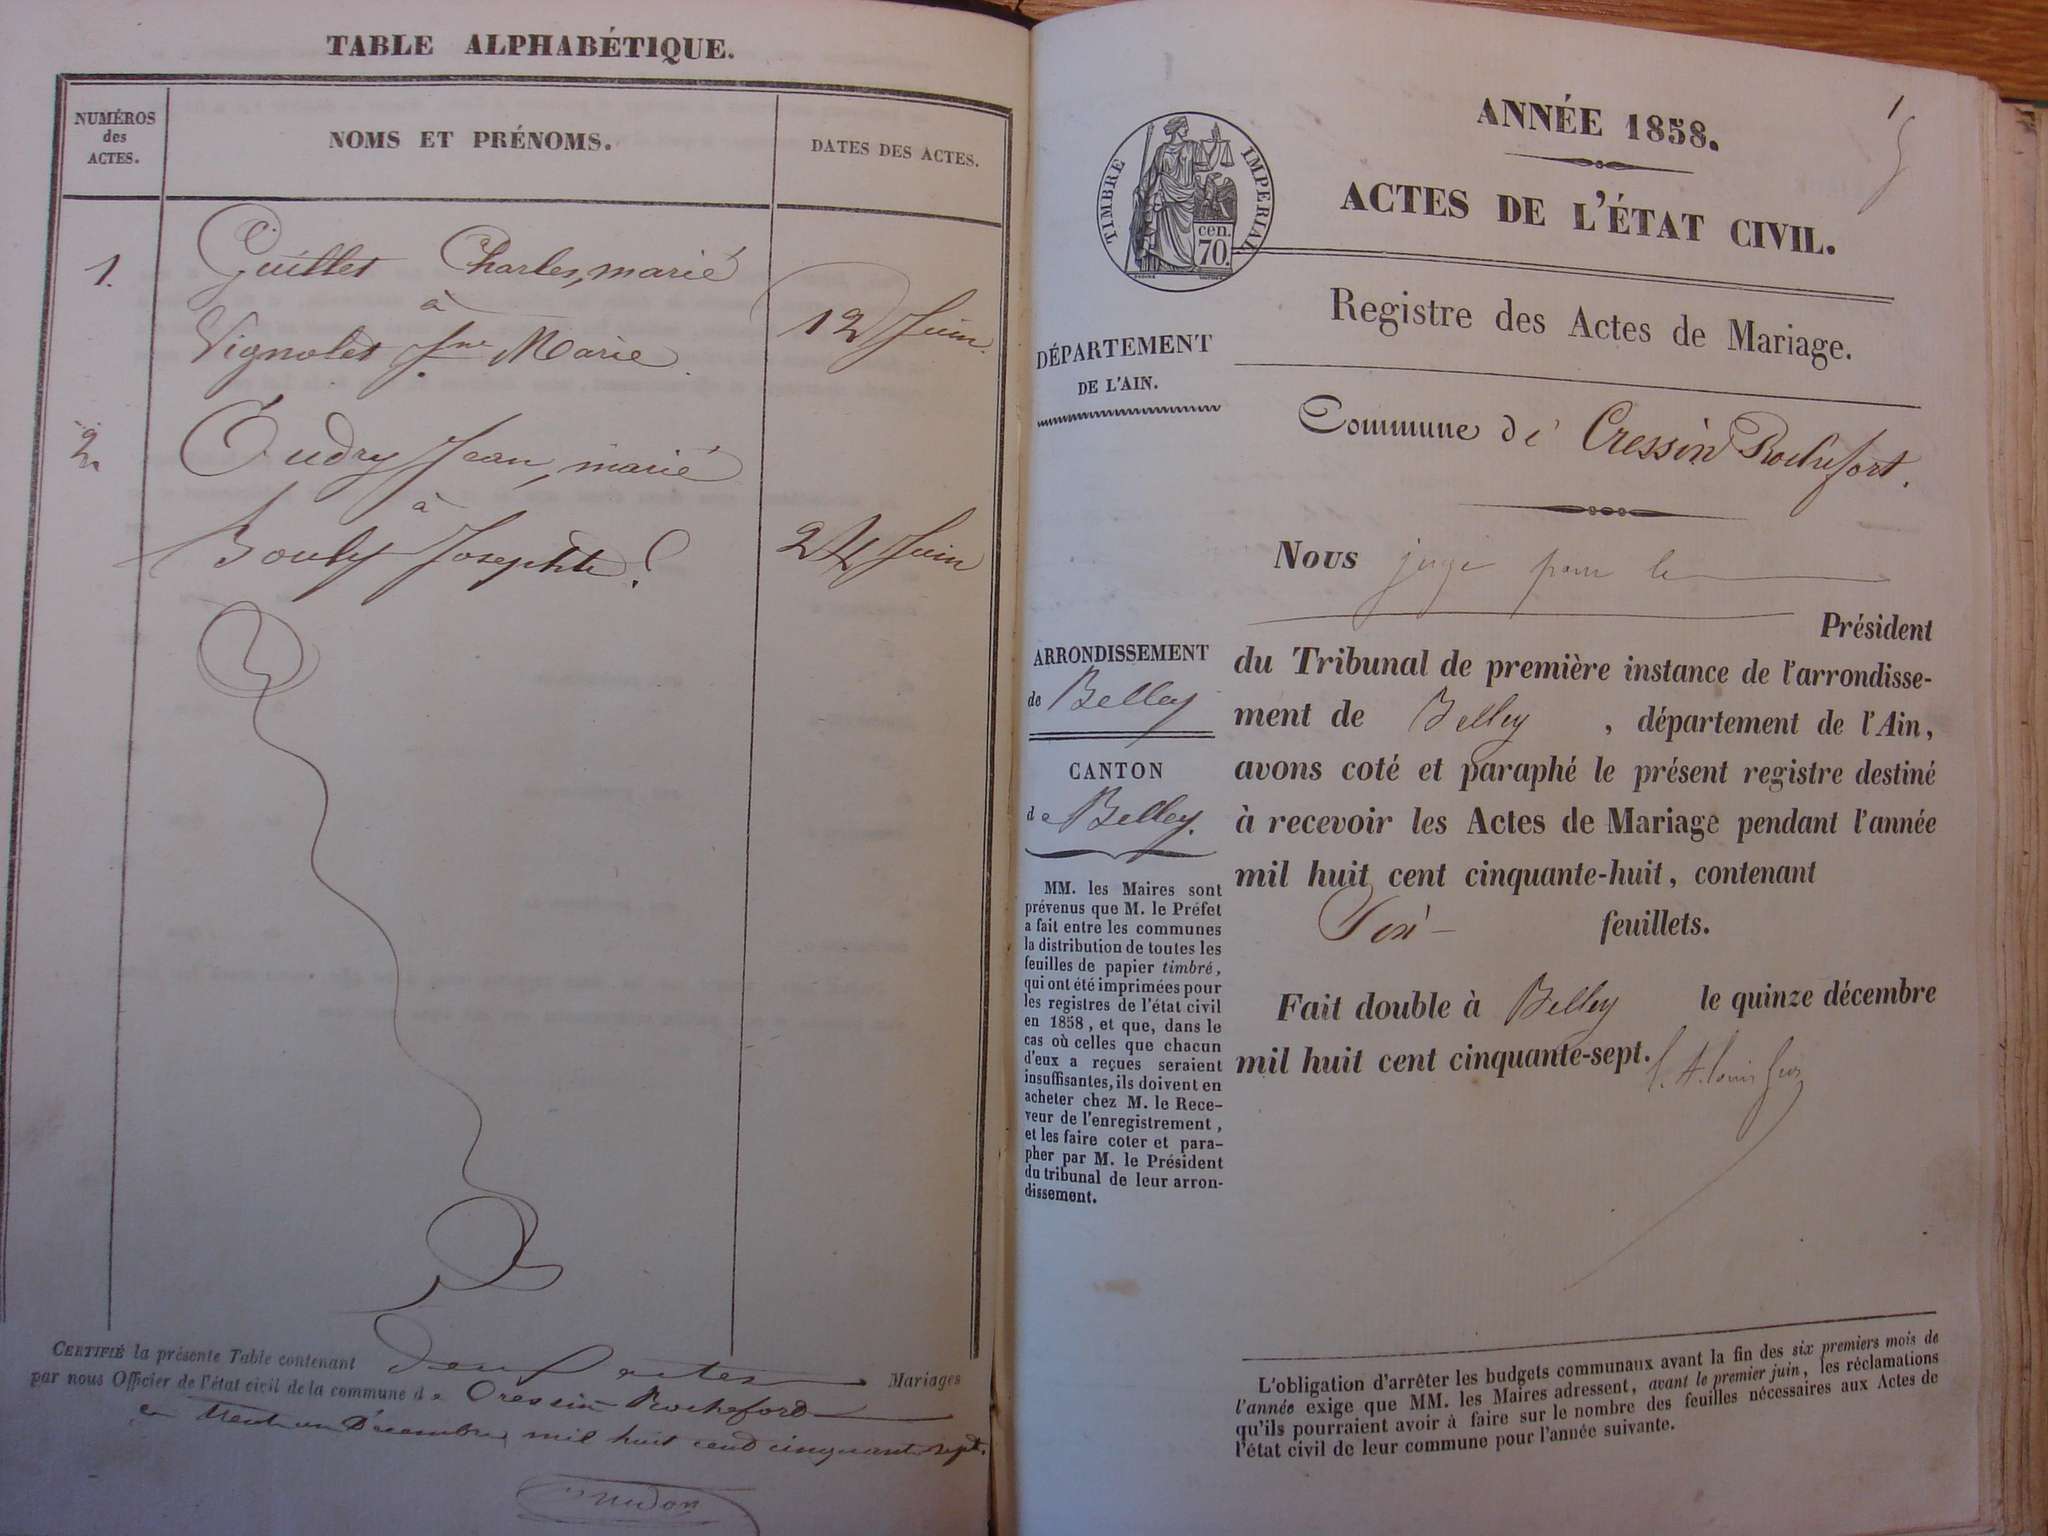 TABLE ALPHABÉTIQUE.
NUMÉROS
des
ACTES.
NOMS ET PRÉNOMS.
DATES DES ACTES.
1.
Guillet Charles, marié
à
Vignolet Jne Marie
12 Juin.
2.
Eudry Jean, marié
à
Bouly Josephte.
24 Juin
CERTIFIÉ la présente Table contenant deux actes Mariages
par nous Officier de l'état civil de la commune de Cressin-Rocheford
ce trente un Décembre, mil huit cend cinquante sept.
1
ANNÉE 1858.
TIMBRE IMPERIAL
cen.
70.
ACTES DE L'ÉTAT CIVIL.
Registre des Actes de Mariage.
DÉPARTEMENT
DE L'AIN.
Commune de Cressin Rochefort.
Nous juge pour le
Président
du Tribunal de première instance de l'arrondisse-
ment de Belley, département de l'Ain,
avons coté et paraphé le présent registre destiné
à recevoir les Actes de Mariage pendant l'année
mil huit cent cinquante-huit, contenant
feuillets.
Fait double à Belley le quinze décembre
mil huit cent cinquante-sept.
ARRONDISSEMENT
de Belley
CANTON
de Belley.
MM. les Maires sont
prévenus que M. le Préfet
a fait entre les communes
la distribution de toutes les
feuilles de papier timbré,
qui ont été imprimées pour
les registres de l'état civil
en 1858, et que, dans le
cas où celles que chacun
d'eux a reçues seraient
insuffisantes, ils doivent en
acheter chez M. le Rece-
veur de l'enregistrement,
et les faire coter et para-
pher par M. le Président
du tribunal de leur arron-
dissement.
L'obligation d'arrêter les budgets communaux avant la fin des six premiers mois de
l'année exige que MM. les Maires adressent, avant le premier juin, les réclamations
qu'ils pourraient avoir à faire sur le nombre des feuilles nécessaires aux Actes de
l'état civil de leur commune pour l'année suivante.